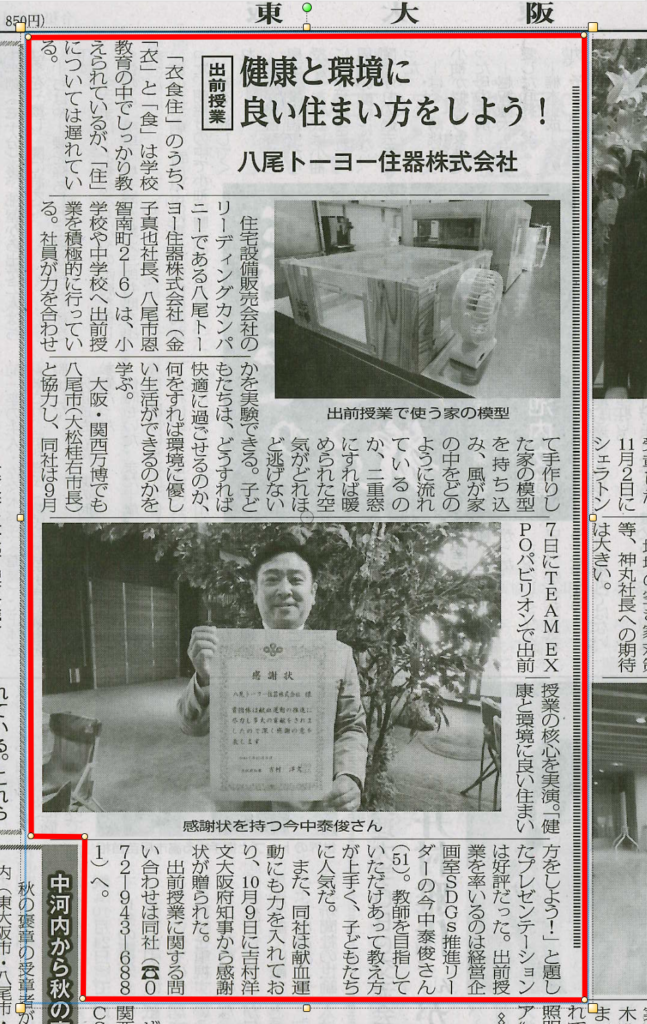 850円)
東大阪
出前授業
健康と環境に
良い住まい方をしよう!
八尾トーヨー住器株式会社
「衣食住」のうち、
「衣」と「食」は学校
教育の中でしっかり教
えられているが、「住」
については遅れてい
る。
住宅設備販売会社の
リーディングカンパ
ニーである八尾トー
ヨー住器株式会社(金
子真也社長、八尾市恩
智南町2―6)は、小
学校や中学校へ出前授
業を積極的に行ってい
る。社員が力を合わせ
出前授業で使う家の模型
て手作りし
た家の模型
を持ち込
み、風が家
の中をどの
ように流れ
ているの
か、二重窓
にすれば暖
められた空
気がどれほ
ど逃げない
かを実験できる。子ど
もたちは、どうすれば
快適に過ごせるのか、
何をすれば環境に優し
い生活ができるのかを
学ぶ。
大阪・関西万博でも
八尾市(大松桂右市長)
と協力し、同社は9月
7日にTEAM EX
POパビリオンで出前
授業の核心を実演。「健
康と環境に良い住まい
感謝状
八尾トーヨー住器株式会社 様
貴団体は献血運動の推進に
尽力し多大の貢献をされま
したので深く感謝の意を
表します
吉村 洋文
感謝状を持つ今中泰俊さん
方をしよう!」と題し
たプレゼンテーション
は好評だった。出前授
業を率いるのは経営企
画室SDGs推進リー
ダーの今中泰俊さん
(51)。教師を目指して
いただけあって教え方
が上手く、子どもたち
に人気だ。
また、同社は献血運
動にも力を入れてお
り、10月9日に吉村洋
文大阪府知事から感謝
状が贈られた。
出前授業に関する問
い合わせは同社(☎0
72―943―688
1)へ。
11月2日に
シェラトン
等、神丸社長への期待
は大きい。
れている。これら
中河内から秋の
秋の褒章の受章者が
内(東大阪市・八尾市